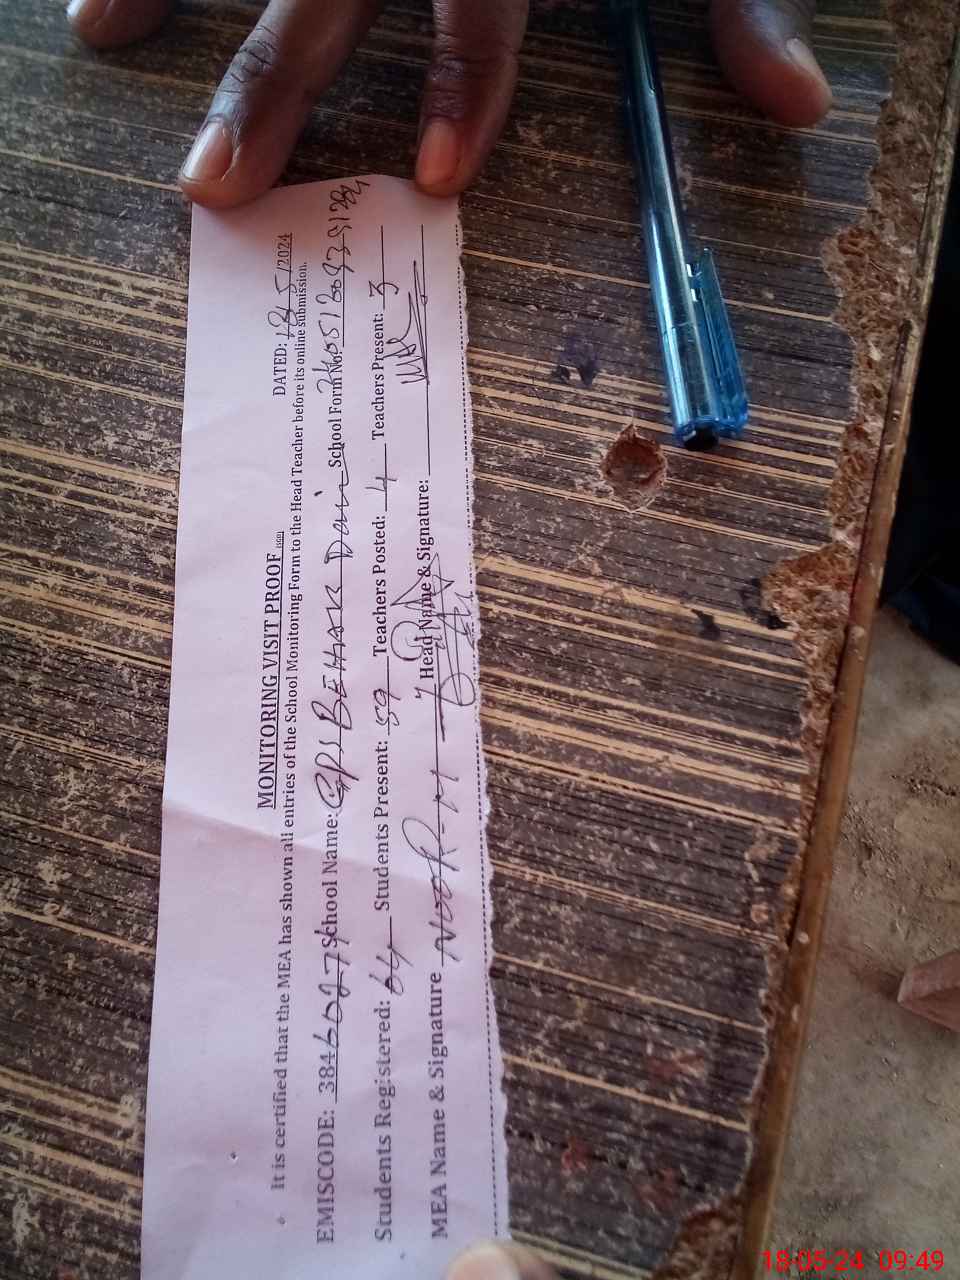 MONITORING VISIT PROOF
DATED: 18/5/2024
It is certified that the MEA has shown all entries of the School Monitoring Form to the Head Teacher before its online submission.
EMISCODE: 38460274 School Name: GPS BEHAK School Form No:
Students Registered: 64 Students Present: 59 Teachers Posted: 4 Teachers Present: 3
MEA Name & Signature NOOR-M Head Name & Signature:
18-05-24 09:49